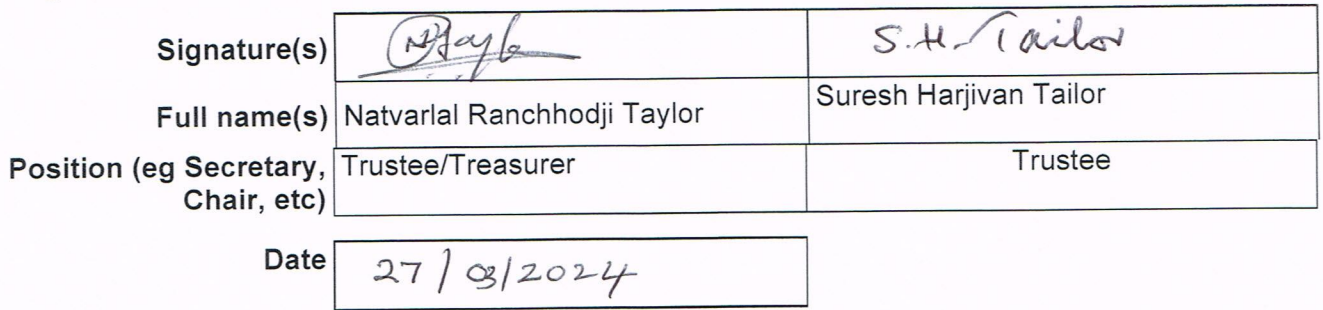 Signature(s) NRTayl S.H. Tailor
Full name(s) Natvarlal Ranchhodji Taylor Suresh Harjivan Tailor
Position (eg Secretary, Trustee/Treasurer Trustee
Chair, etc)
Date 27/03/2024